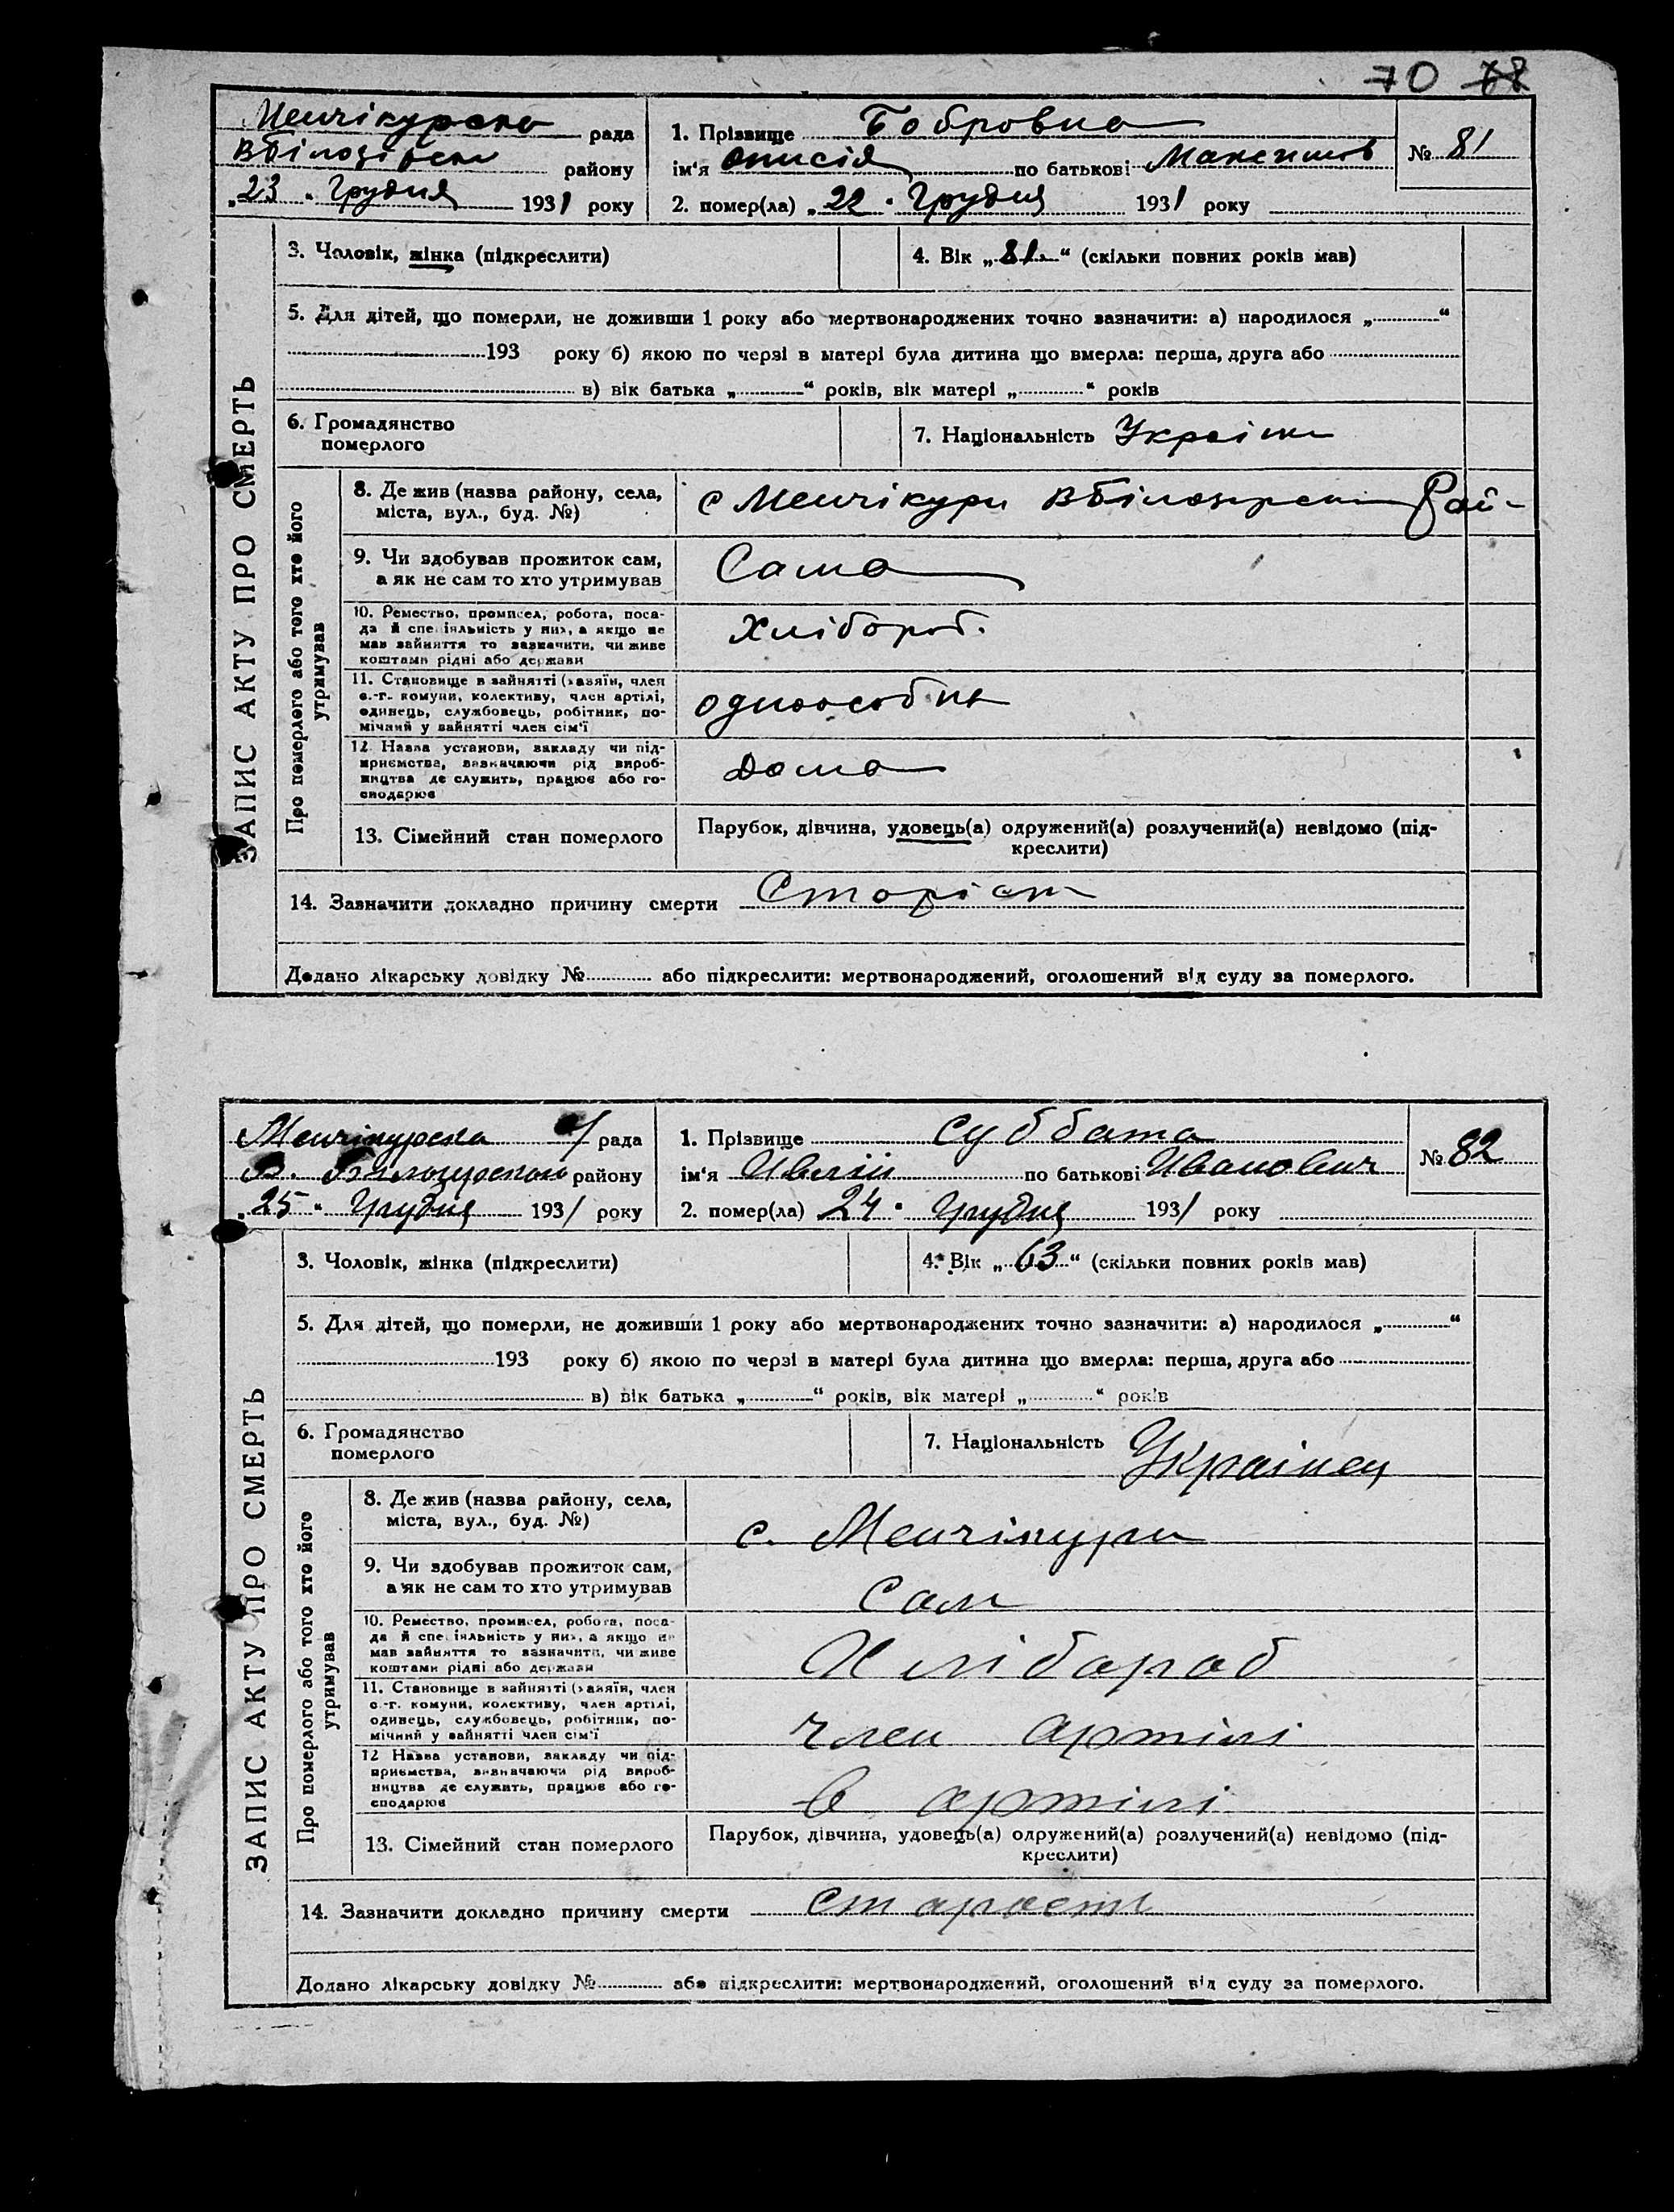 70 78
Менчікурска рада
В Білозірськ району
„23“ Грудня 1931 року
1. Прізвище Бобровна
ім'я Онисія по батькові Максимов
2. помер(ла) „22“ Грудня 1931 року
№ 81
ЗАПИС АКТУ ПРО СМЕРТЬ
3. Чоловік, жінка (підкреслити)
4. Вік „81“ (скільки повних років мав)
5. Для дітей, що померли, не доживши 1 року або мертвонароджених точно зазначити: а) народилося „ “
193 року б) якою по черзі в матері була дитина що вмерла: перша, друга або
в) вік батька „ “ років, вік матері „ “ років
6. Громадянство
померлого
7. Національність Україн
Про померлого або того хто його
утримував
8. Де жив (назва району, села,
міста, вул., буд. №)
с Менчікури В Білозирськ Рай-
9. Чи здобував прожиток сам,
а як не сам то хто утримував
Сама
10. Ремество, промисел, робота, поса-
да й спеціяльність у них, а якщо не
мав зайняття то зазначити, чи живе
коштами рідні або держави
Хлібороб.
11. Становище в зайнятті (хазяїн, член
с.-г. комуни, колективу, член артілі,
одинець, службовець, робітник, по-
мічний у зайнятті член сім'ї
одноособна
12 Назва установи, закладу чи під-
приємства, зазначаючи рід вироб-
ництва де служить, працює або го-
сподарює
Дома
13. Сімейний стан померлого
Парубок, дівчина, удовець(а) одружений(а) розлучений(а) невідомо (під-
креслити)
14. Зазначити докладно причину смерти Старіст
Додано лікарську довідку № або підкреслити: мертвонароджений, оголошений від суду за померлого.
Менчікурска рада
В. Білозурском району
„25“ Грудня 1931 року
1. Прізвище Суббата
ім'я Ивлій по батькові Иванович
2. помер(ла) 24“ Грудня 1931 року
№ 82
ЗАПИС АКТУ ПРО СМЕРТЬ
3. Чоловік, жінка (підкреслити)
4. Вік „63“ (скільки повних років мав)
5. Для дітей, що померли, не доживши 1 року або мертвонароджених точно зазначити: а) народилося „ “
193 року б) якою по черзі в матері була дитина що вмерла: перша, друга або
в) вік батька „ “ років, вік матері „ “ років
6. Громадянство
померлого
7. Національність Українец
Про померлого або того хто його
утримував
8. Де жив (назва району, села,
міста, вул., буд. №)
с. Менчікури
9. Чи здобував прожиток сам,
а як не сам то хто утримував
Сам
10. Ремество, промисел, робота, поса-
да й спеціяльність у них, а якщо не
мав зайняття то зазначити, чи живе
коштами рідні або держави
Хлібароб
11. Становище в зайнятті (хазяїн, член
с.-г. комуни, колективу, член артілі,
одинець, службовець, робітник, по-
мічний у зайнятті член сім'ї
член артілі
12 Назва установи, закладу чи під-
приємства, зазначаючи рід вироб-
ництва де служить, працює або го-
сподарює
в артілі
13. Сімейний стан померлого
Парубок, дівчина, удовець(а) одружений(а) розлучений(а) невідомо (під-
креслити)
14. Зазначити докладно причину смерти старость
Додано лікарську довідку № або підкреслити: мертвонароджений, оголошений від суду за померлого.